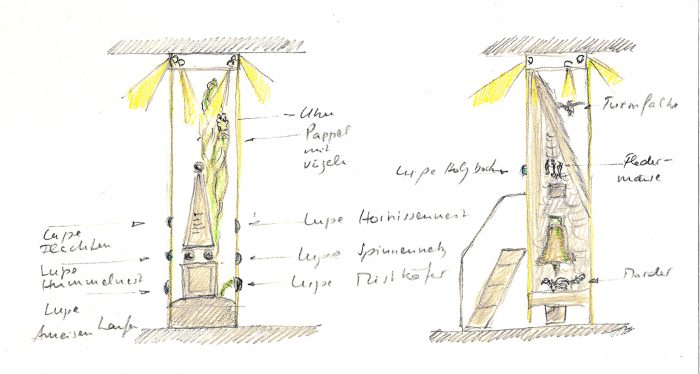 Uhu
Pappel
mit
Vögeln
Lupe
Flechten
Lupe
Hummelnest
Lupe
Ameisenhaufen
Lupe Hornissennest
Lupe Spinnennetz
Lupe Mistkäfer
Turmfalke
Lupe Holzbock
Fleder-
mäuse
Marder